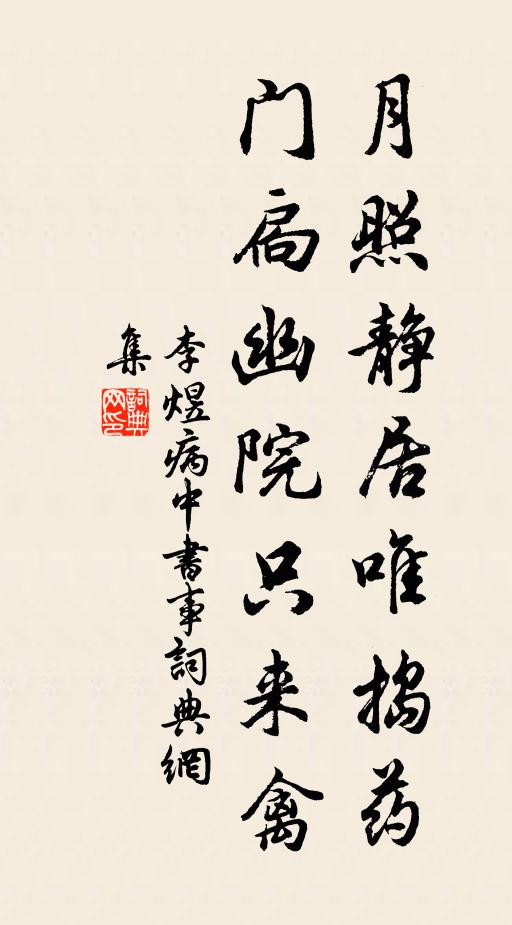 月照静居唯捣药
门扃幽院只来禽
李煜病中書事詞典網
集
詞典
网印